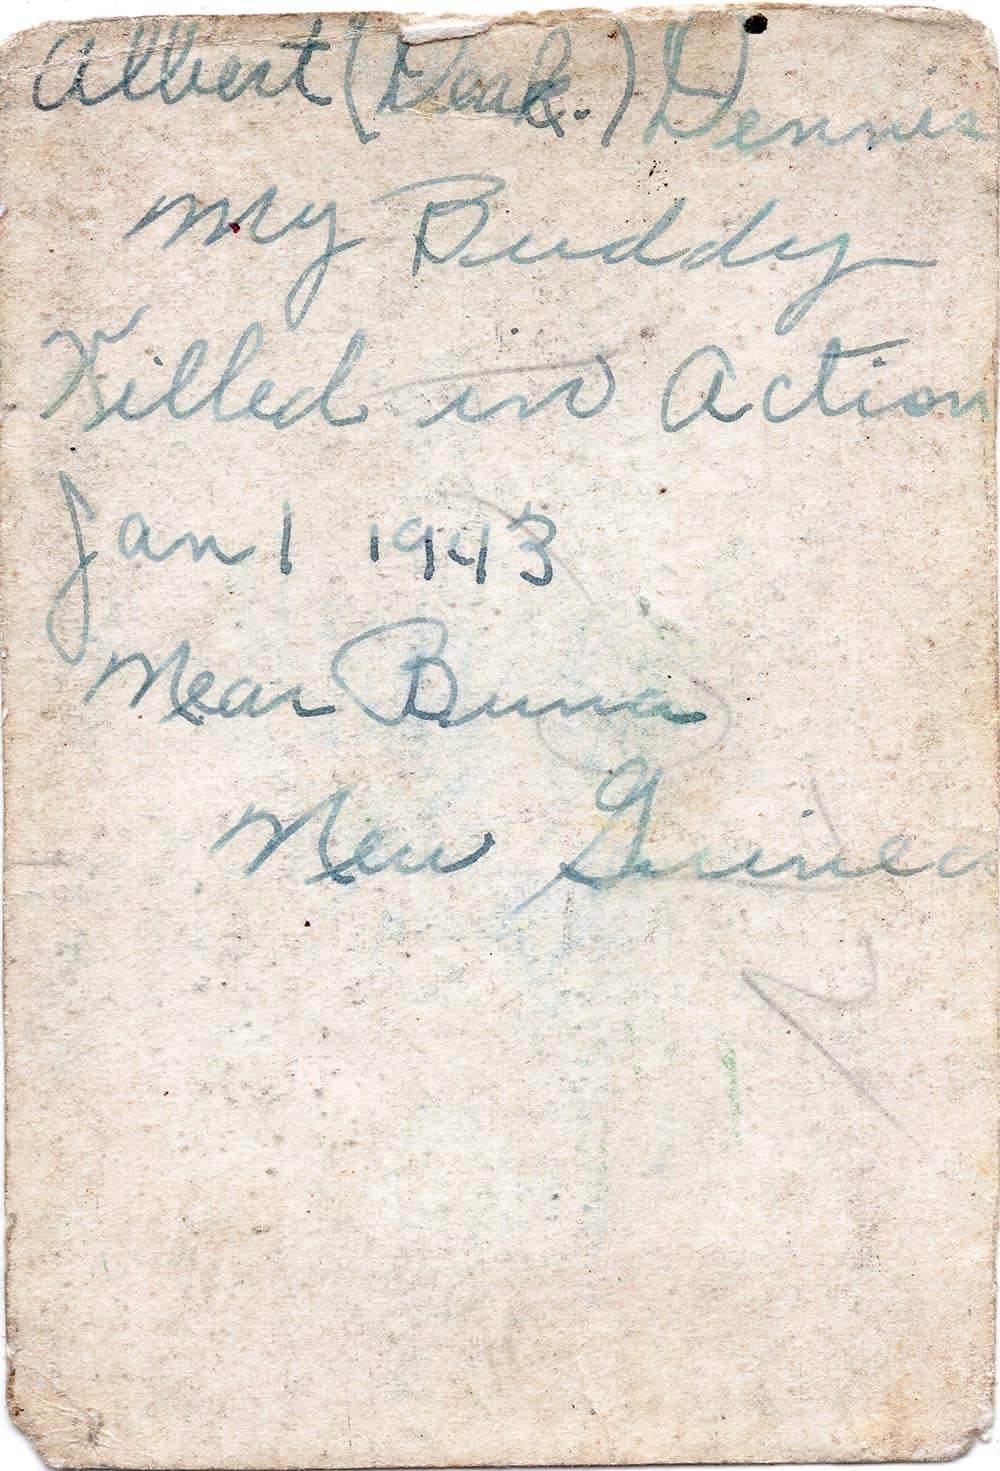 Albert (Deak.) Dennis
My Buddy
Killed in Action
Jan 1 1943
Near Buna
New Guinea